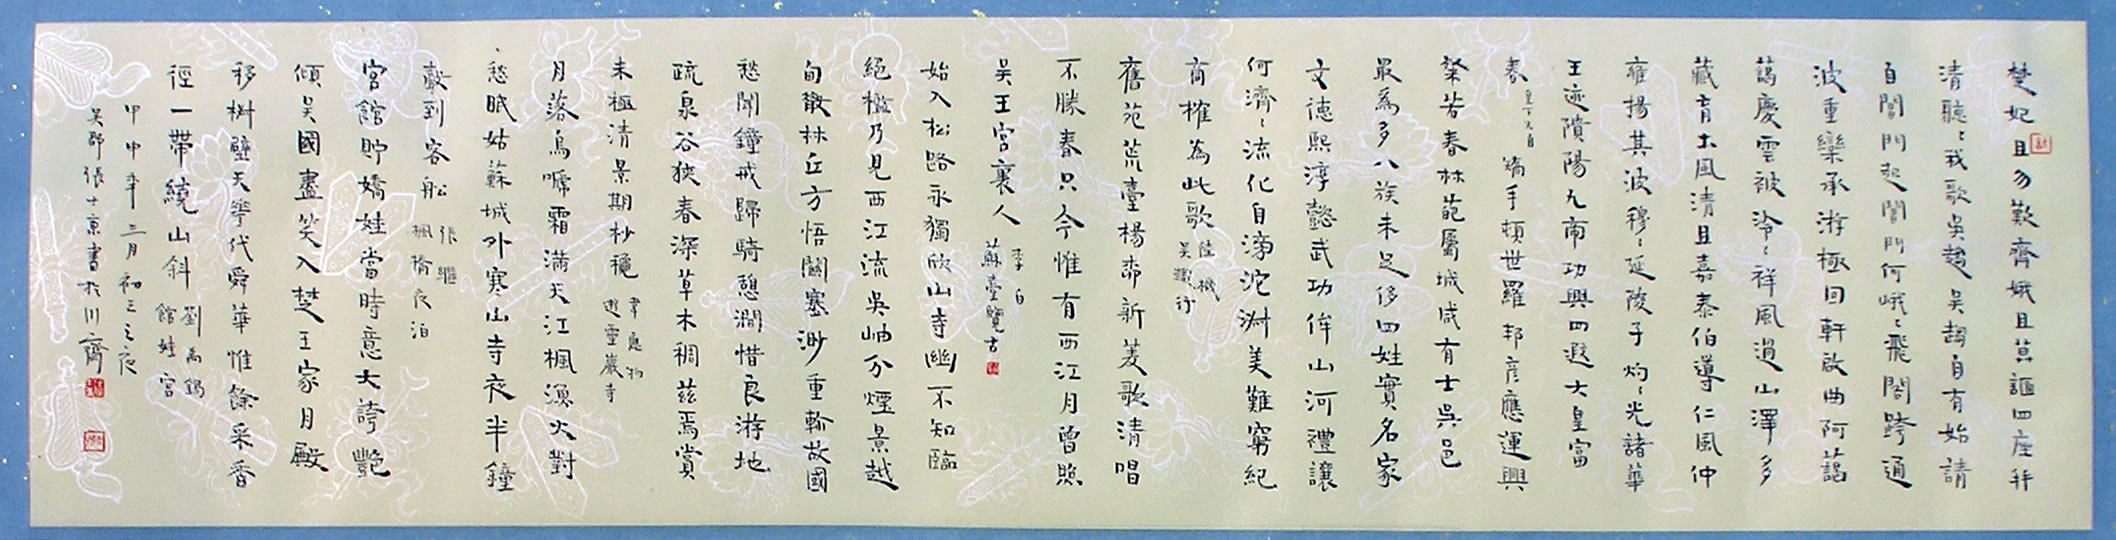 楚妃且勿歎齊娥且莫謳四座并
清聽〻我歌吳趨吳趨自有始請
自閶門起閶門何峨〻飛閣跨通
波重欒承游極回軒啟曲阿藹
藹慶雲被泠〻祥風過山澤多
藏育土風清且嘉泰伯導仁風仲
雍揚其波穆〻延陵子灼〻光諸華
王迹隤陽九帝功興四遐大皇富
春 矯手頓世羅邦彥應運興
粲若春林葩屬城咸有士吳邑
最為多八族未足侈四姓實名家
文德熙淳懿武功侔山河禮讓
何濟〻流化自滂沱淑美難窮紀
商榷為此歌
陸機
吳趨行
舊苑荒臺楊柳新菱歌清唱
不勝春只今惟有西江月曾照
吳王宮裏人
李白
蘇臺覽古
始入松路永獨欣山寺幽不知臨
絕檻乃見西江流吳岫分煙景越
甸散林丘方悟關塞渺重軫故國
愁聞鐘戒歸騎憩澗惜良游地
疏泉谷狹春深草木稠茲焉賞
未極清景期杪穐
韋應物
遊靈巖寺
月落烏啼霜滿天江楓漁火對
愁眠姑蘇城外寒山寺夜半鐘
聲到客船
張繼
楓橋夜泊
宮館貯嬌娃當時意大誇艷
傾吳國盡笑入楚王家月殿
移椒壁天花代舜華惟餘采香
徑一帶繞山斜
劉禹錫
館娃宮
甲申年三月初三之夜
吳郡張士東書於川齋